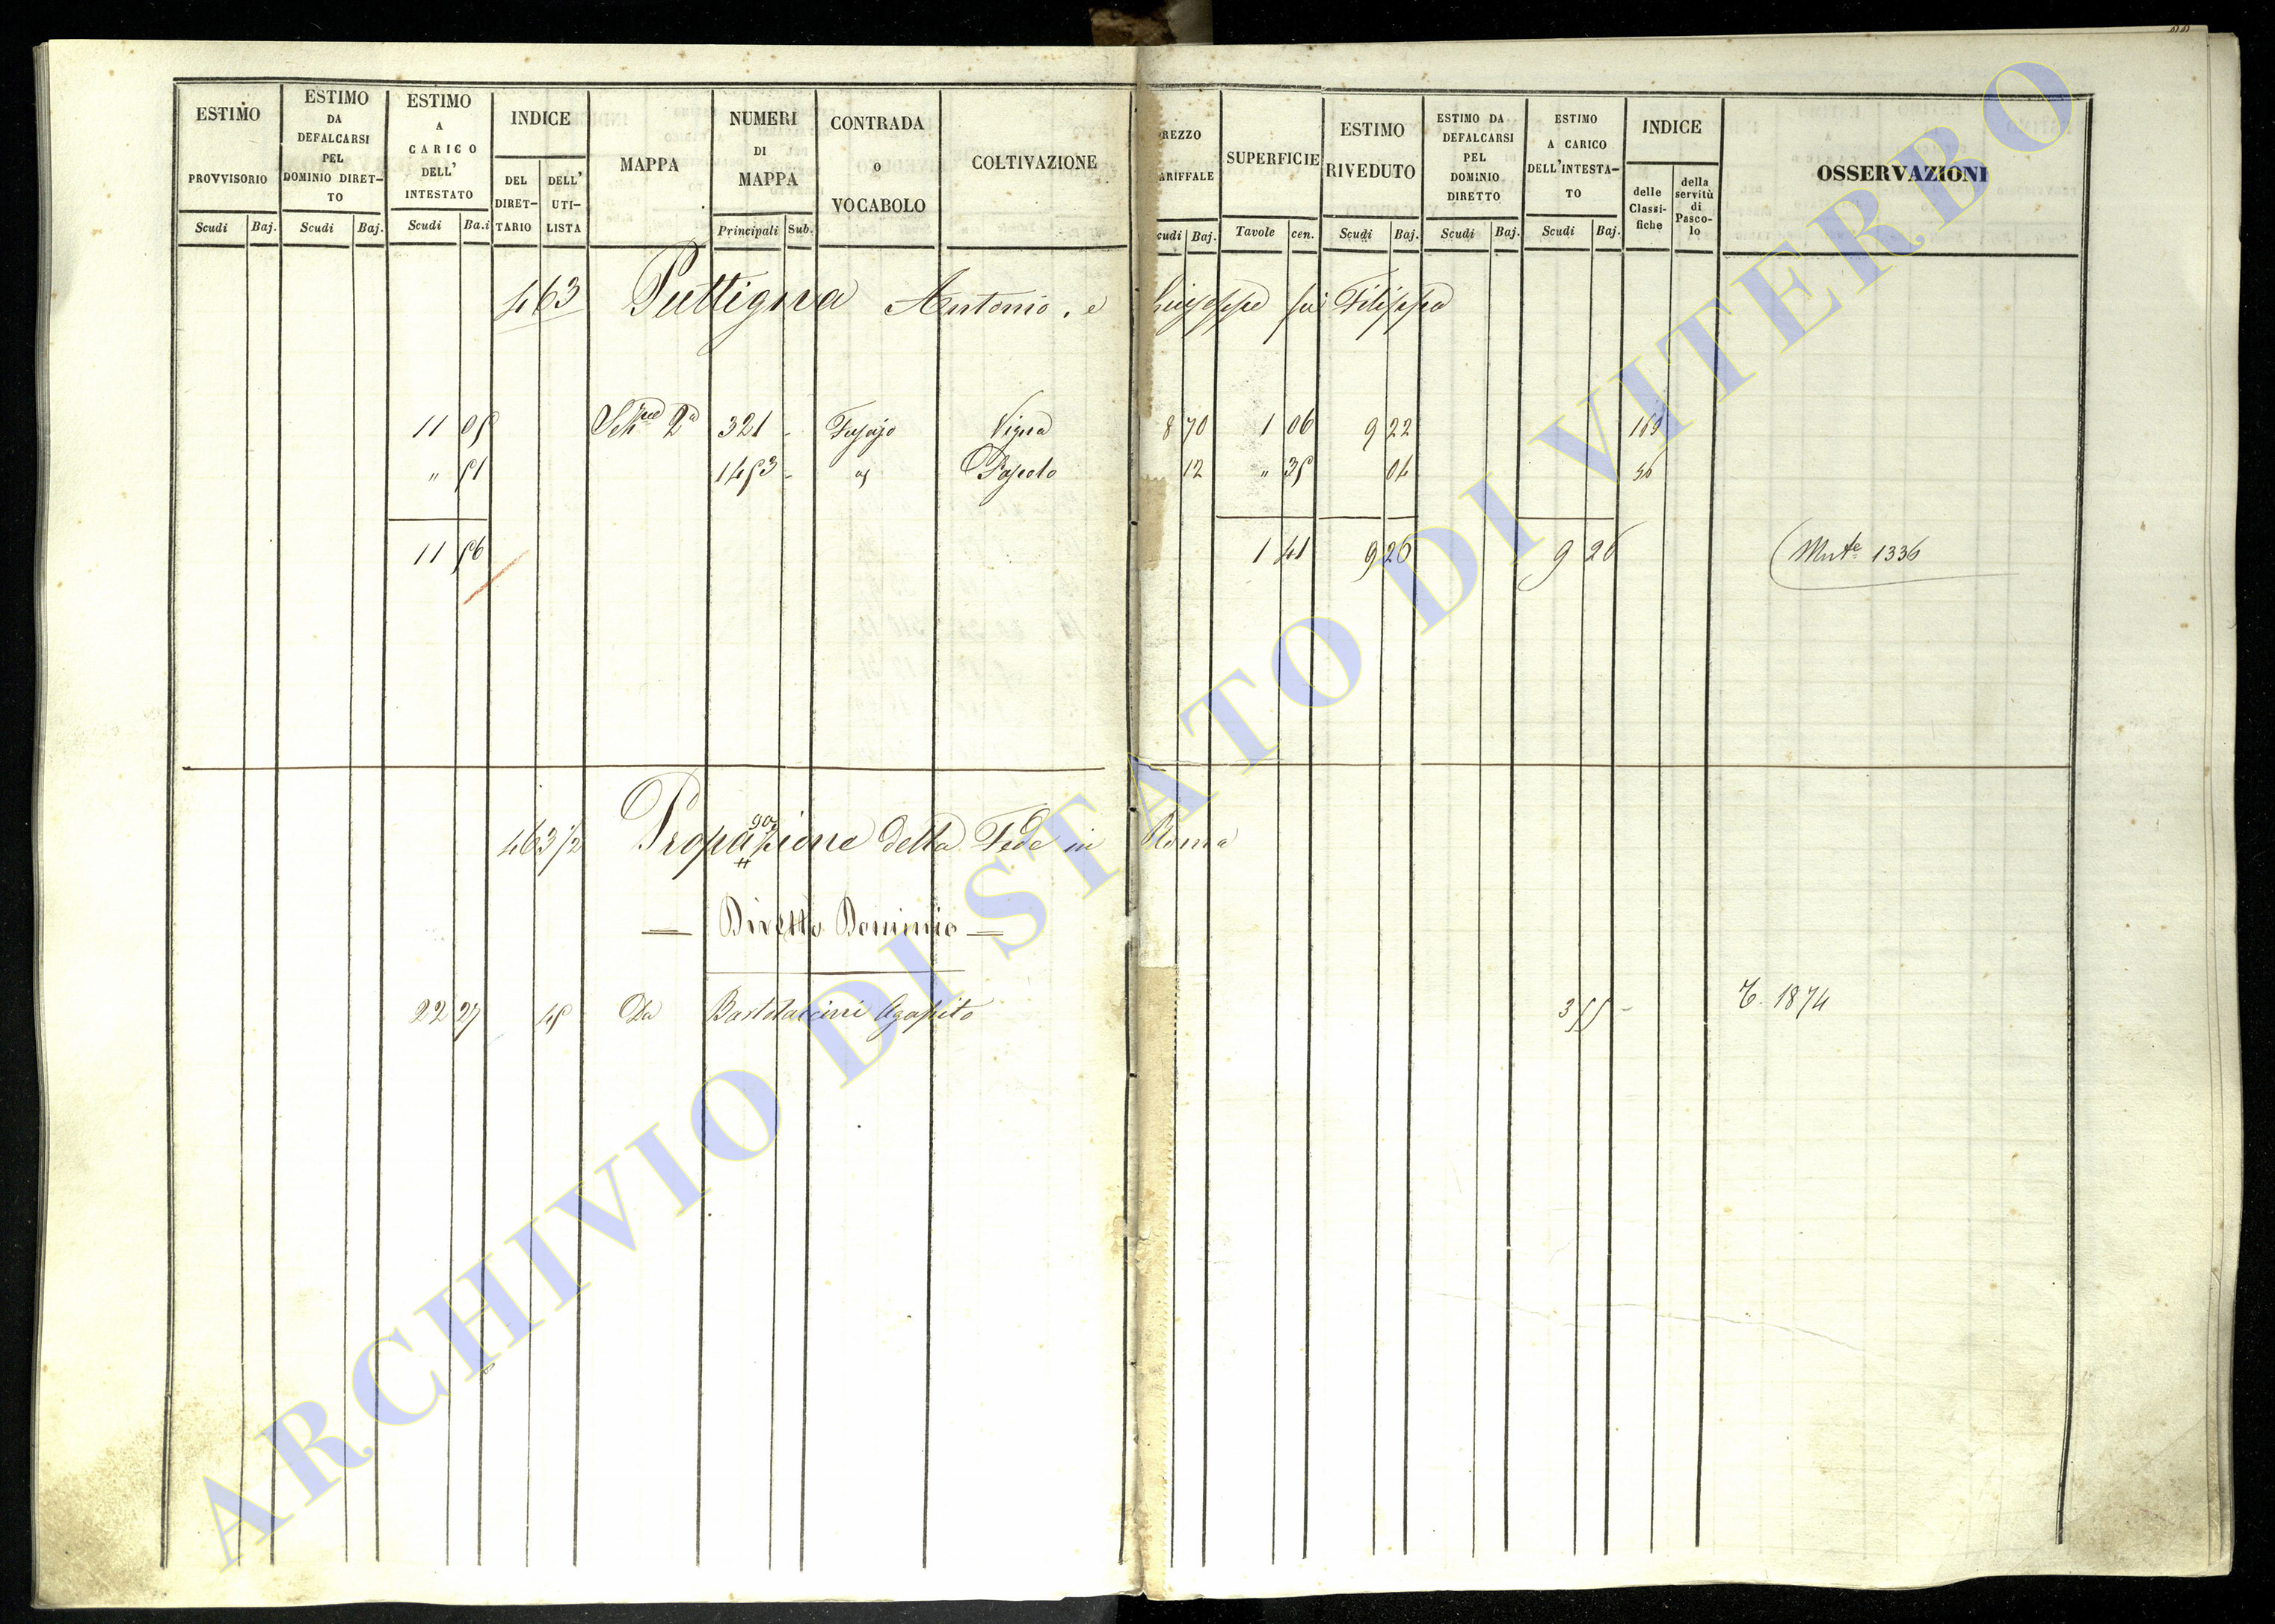 ESTIMO PROVVISORIO
ESTIMO DA DEFALCARSI PEL DOMINIO DIRETTO
ESTIMO A CARICO DELL' INTESTATO
INDICE
DEL DIRETTARIO
DELL' UTILISTA
MAPPA
NUMERI DI MAPPA
CONTRADA O VOCABOLO
COLTIVAZIONE
REZZO ARIFFALE
SUPERFICIE
ESTIMO RIVEDUTO
ESTIMO DA DEFALCARSI PEL DOMINIO DIRETTO
ESTIMO A CARICO DELL'INTESTATO
INDICE
delle Classifiche
della servitù di Pascolo
OSSERVAZIONI
Scudi Baj. Scudi Baj. Scudi Ba.i Principali Sub. cudi Baj. Tavole cen. Scudi Baj. Scudi Baj. Scudi Baj.
463 Puttigna Antonio, e Giuseppe fu Filippo
11 05 2a 321 - Vigna 8 70 1 06 9 22 169
" 51 1453 - Pascolo 12 " 35 04 56
11 56 1 41 9 26 9 26 Mut.e 1336
463 1/2 Propagazione della Fede in Roma
Diretto Dominio
22 27 45 Da Bartolaccini Agapito 355 - T. 1874
ARCHIVIO DI STATO DI VITERBO